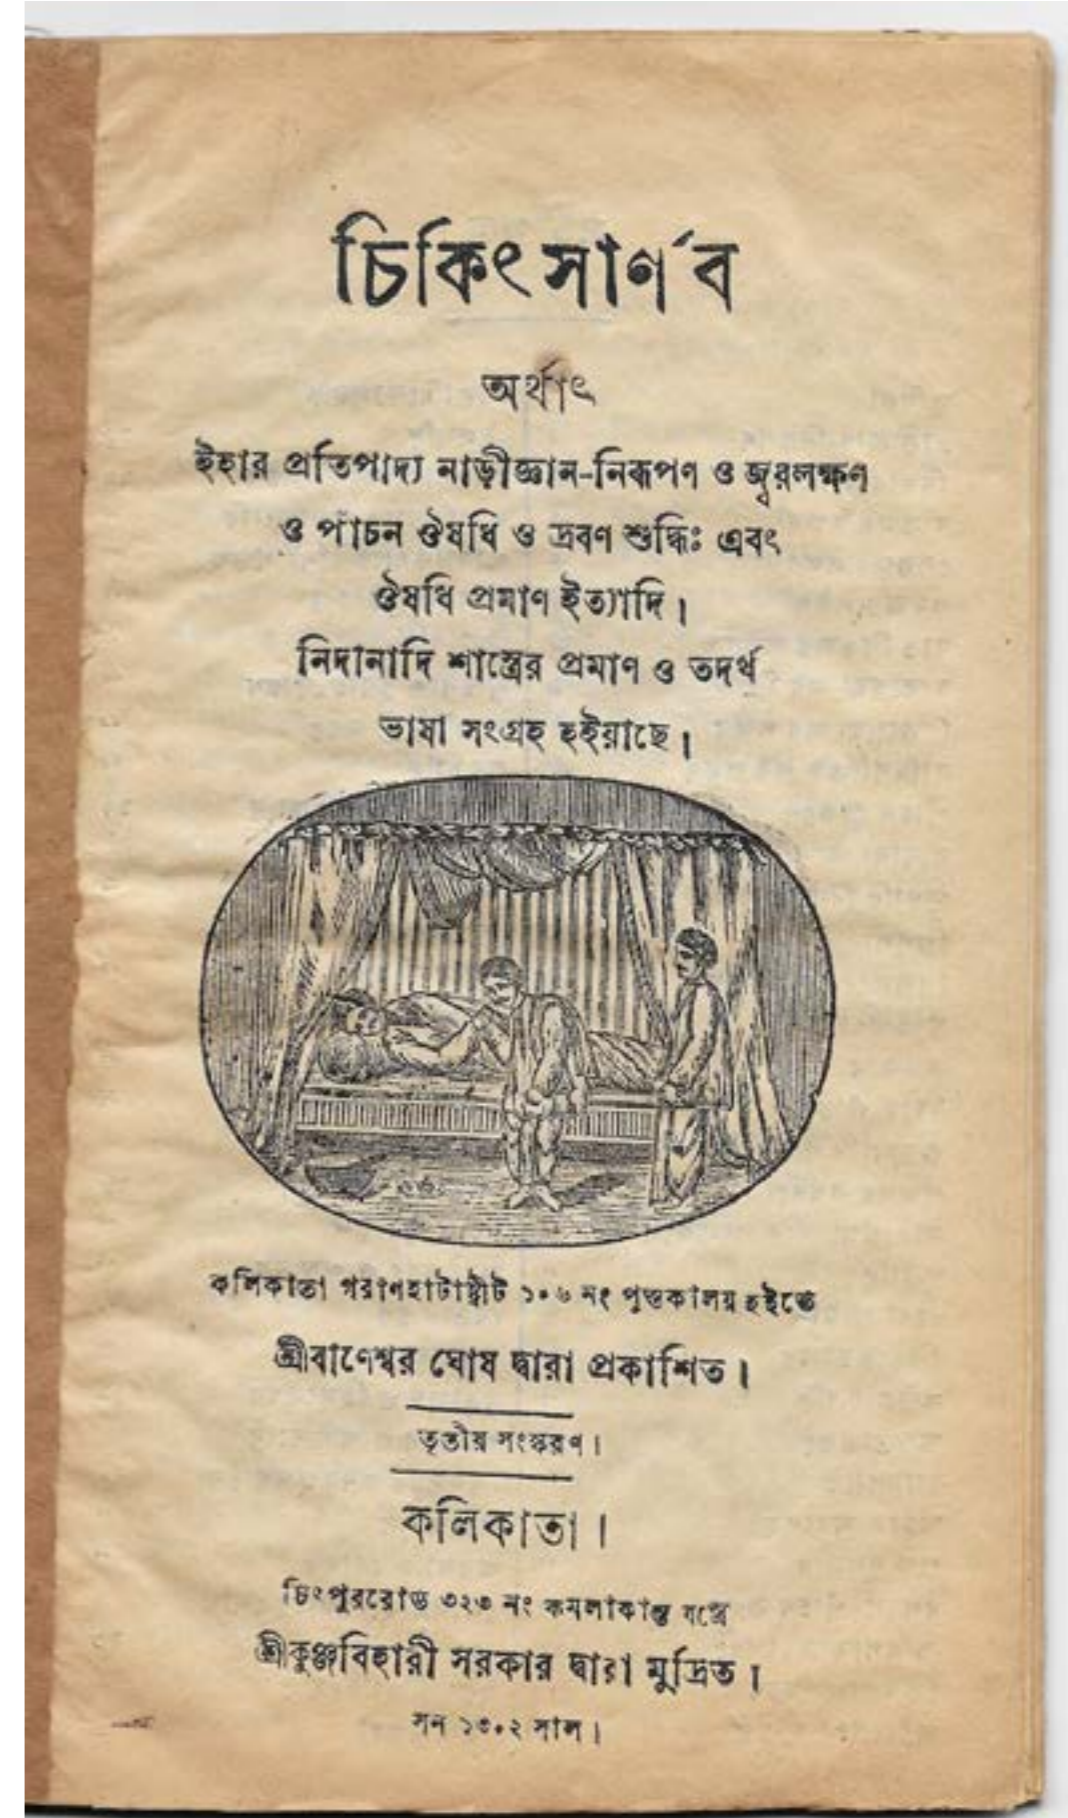 চিকিৎসার্ণব
অর্থাৎ
ইহার প্রতিপাদ্য নাড়ীজ্ঞান-নিরূপণ ও জ্বরলক্ষণ
ও পাচন ঔষধি ও দ্রবণ শুদ্ধিঃ এবং
ঔষধি প্রমাণ ইত্যাদি।
নিদানাদি শাস্ত্রের প্রমাণ ও তদর্থ
ভাষা সংগ্রহ হইয়াছে।
কলিকাতা গরাণহাটাষ্ট্রীট ১০৬ নং পুস্তকালয় হইতে
শ্রীবাণেশ্বর ঘোষ দ্বারা প্রকাশিত।
তৃতীয় সংস্করণ।
কলিকাতা।
চিৎপুররোড ৩২৩ নং কমলাকান্ত যন্ত্রে
শ্রীকুঞ্জবিহারী সরকার দ্বারা মুদ্রিত।
সন ১৩০২ সাল।